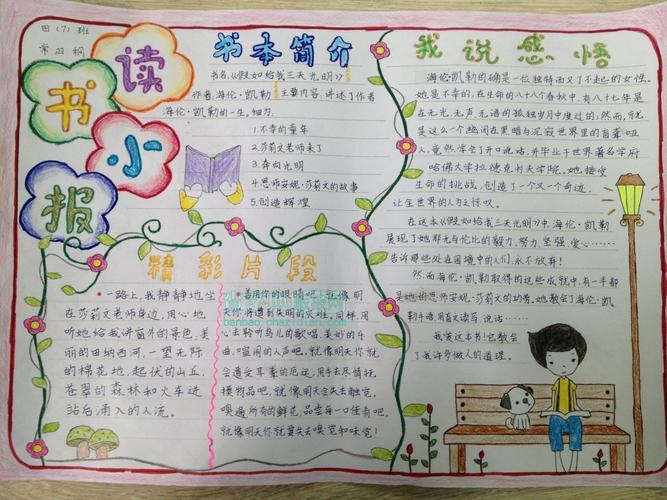 四(7)班
常羽桐
读书小报
书本简介
书名:《假如给我三天光明》
作者:海伦·凯勒 主要内容:讲述了作者
海伦·凯勒的一生。细刃:
1.不幸的童年
2.莎莉文老师来了
3.奔向光明
4.恩师安妮·莎莉文的故事
5.创造辉煌
精彩片段
一路上,我静静地坐
在莎莉文老师身边,用心地
听她给我讲窗外的景色,美
丽的田纳西河,一望无际
的棉花地,起伏的山丘,
苍翠的森林和火车进
站后涌入的人流。
善用你的眼睛吧!就像明
天你将遭到失明的灾难。同样,用
心去聆听鸟儿的歌唱、美妙的乐
曲、喧闹的人声吧,就像明天你就
会遭受耳聋的厄运。用手去尽情抚
摸物品吧,就像明天会失去触觉,
嗅遍所有的鲜花,品尝每一口佳肴吧,
就像明天你就要失去嗅觉和味觉!
banbao.chazidian.com
我说感悟
海伦·凯勒的确是一位独特而又了不起的女性。
她是不幸的,在生命的八十八个春秋中,有八十七年是
在无光、无声、无语的孤独岁月中度过的;然而,
是这么一个幽闭在黑暗与沉寂世界里的盲聋哑
人,竟然学会了开口说话,并毕业于世界著名学府
哈佛大学拉德克利夫学院。她接受
生命的挑战,创造了一个又一个奇迹,
让生世界的人为之惊叹。
在这本《假如给我三天光明》中,海伦·凯勒
展现了她那无与伦比的毅力,努力,坚强,爱心……
告诉那些处在困境中的人们,永不放弃!
然而,海伦·凯勒取得的这些成就中,有一半都
是她的恩师安妮·莎莉文的功劳,她教会了海伦·凯
勒手语,用盲文读写,说话……
我爱这本书!它教会
了我许多做人的道理。